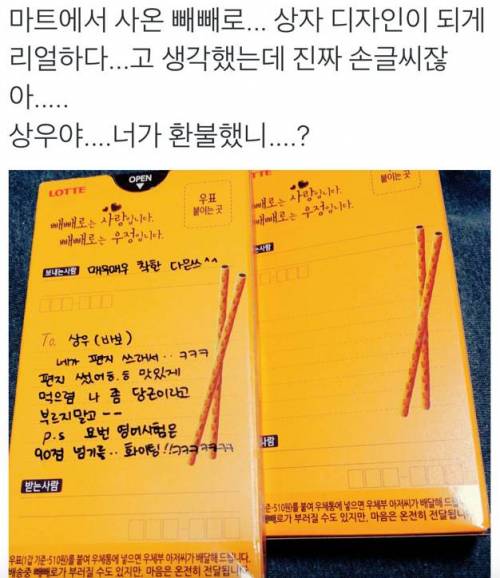 마트에서 사온 빼빼로... 상자 디자인이 되게
리얼하다...고 생각했는데 진짜 손글씨잖
아.....
상우야....너가 환불했니....?
LOTTE
OPEN
빼빼로는 사랑입니다.
빼빼로는 우정입니다.
우표
붙이는 곳
보내는사람 매우매우 착한 다은쓰^^
To 상우 (바보)
네가 편지 쓰래서.. ㅋㅋㅋ
편지 썼어 맛있게
먹으렴 나 좀 당근이라고
부르지말고 --
p.s 요번 영어시험은
90점 넘기를.. 화이팅!!ㅋㅋㅋㅋㅋㅋ
받는사람
우표(1갑 기준-510원)를 붙여 우체통에 넣으면 우체부 아저씨가 배달해 드립니다.
배송중 빼빼로가 부러질 수도 있지만, 마음은 온전히 전달됩니다.
TTE
빼빼로는 사랑입니다.
빼빼로는 우정입니다.
우표
붙이는 곳
는사람
사람
기준-510원)를 붙여 우체통에 넣으면 우체부 아저씨가 배달해 드립
빼빼로가 부러질 수도 있지만, 마음은 온전히 전달됩니